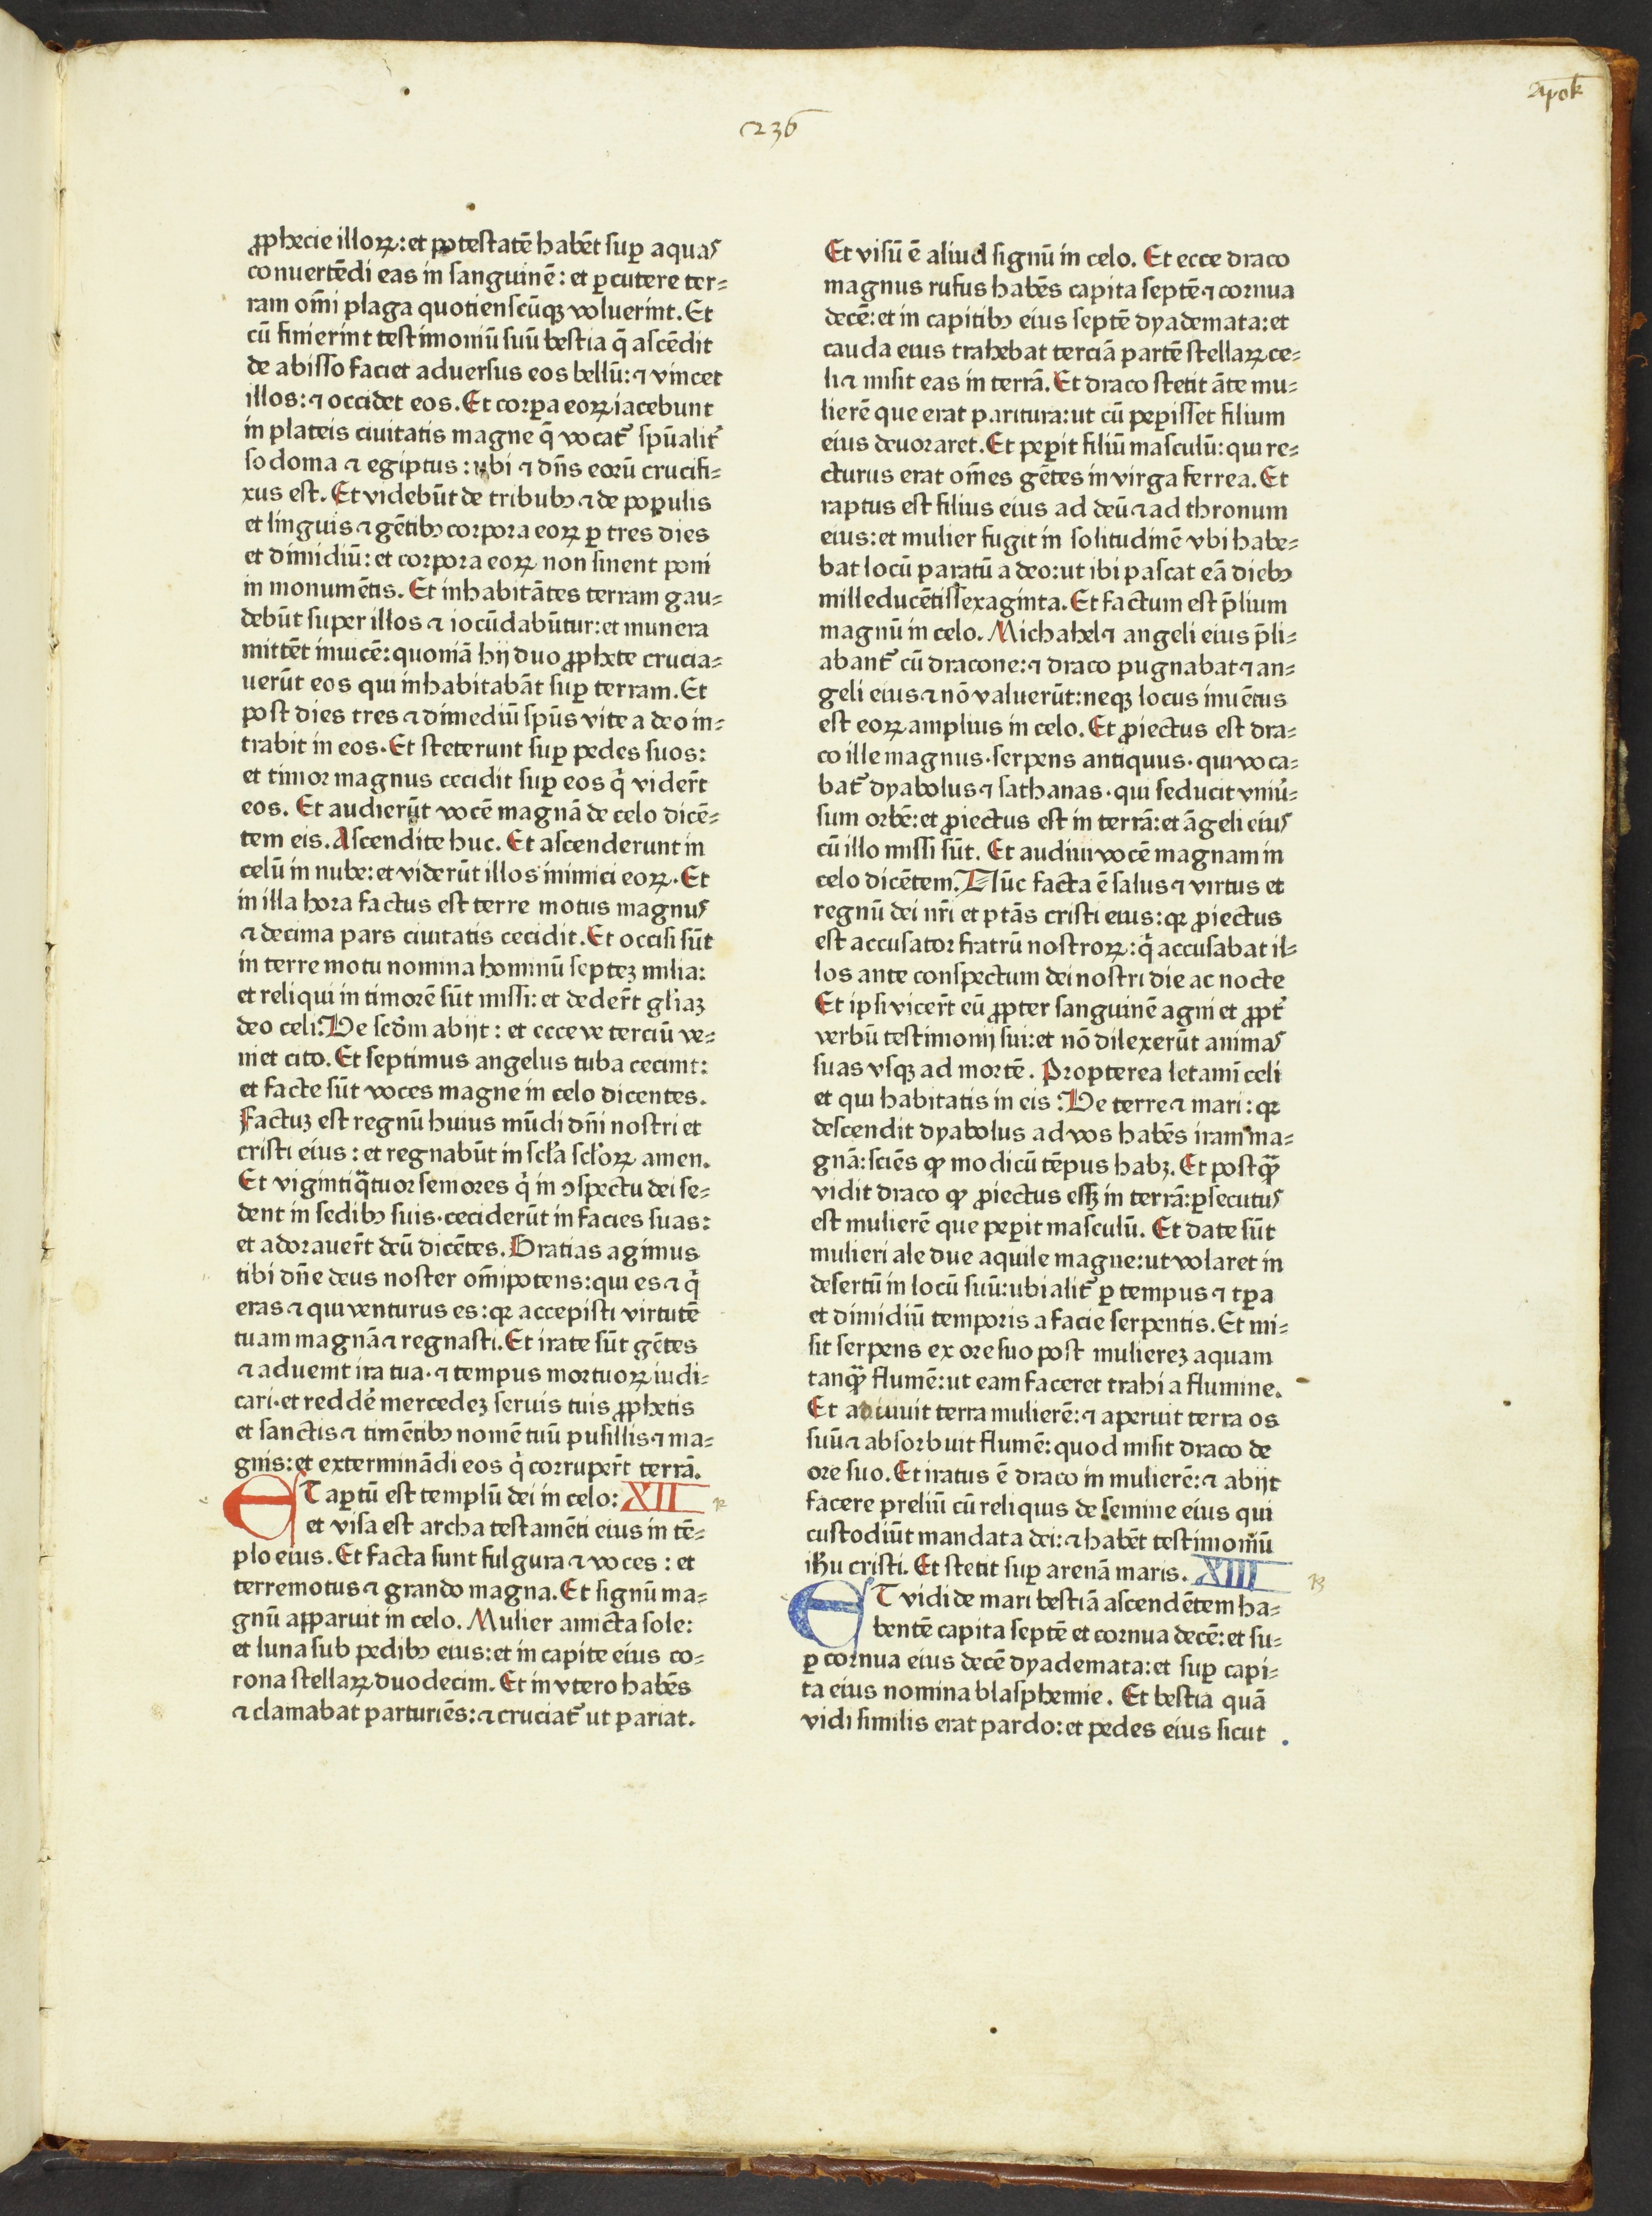 Apok
236
ꝓphecie illoꝝ: et potestatē habēt suꝑ aquas
conuertēdi eas in sanguinē: et ꝑcutere ter⸗
ram om̄i plaga quotienscūqꝫ voluerint. Et
cū finierint testimoniū suū bestia q̄ ascēdit
de abisso faciet aduersus eos bellū: ⁊ vincet
illos: ⁊ occidet eos. Et corꝑa eoꝝ iacebunt
in plateis ciuitatis magne q̄ vocat᷑ spūalit᷑
sodoma ⁊ egiptus: ubi ⁊ dn̄s eorū crucifi⸗
xus est. Et videbūt de tribubꝰ ⁊ de populis
et linguis ⁊ gētibꝰ corpora eoꝝ ꝑ tres dies
et dimidiū: et corpora eoꝝ non sinent poni
in monumētis. Et inhabitātes terram gau⸗
debūt super illos ⁊ iocūdabūtur: et munera
mittēt inuicē: quoniā hij duo ꝓphete crucia⸗
uerūt eos qui inhabitabāt suꝑ terram. Et
post dies tres ⁊ dimediū spūs vite a deo in⸗
trabit in eos. Et steterunt suꝑ pedes suos:
et timor magnus cecidit suꝑ eos q̇ vider̄t
eos. Et audierūt vocē magnā de celo dicē⸗
tem eis. Ascendite huc. Et ascenderunt in
celū in nube: et viderūt illos inimici eoꝝ. Et
in illa hora factus est terre motus magnus
⁊ decima pars ciuitatis cecidit. Et occisi sūt
in terre motu nomina hominū septeꝫ milia:
et reliqui in timorē sūt missi: et deder̄t gl̄iaꝫ
deo celi. Ve scd̄m abijt: et ecce ve terciū ve⸗
niet cito. Et septimus angelus tuba cecinit:
et facte sūt voces magne in celo dicentes.
Factuꝫ est regnū huius mūdi dn̄i nostri et
cristi eius: et regnabūt in scl̄a scl̄oꝝ amen.
Et vigintiq̈tuor seniores q̇ in ꝯspectu dei se⸗
dent in sedibꝰ suis. ceciderūt in facies suas:
et adorauer̄t deū dicētes. Gratias agimus
tibi dn̄e deus noster om̄ipotens: qui es ⁊ q̇
eras ⁊ qui venturus es: qꝛ accepisti virtutē
tuam magnā ⁊ regnasti. Et irate sūt gētes
⁊ aduenit ira tua. ⁊ tempus mortuoꝝ iudi⸗
cari. et redde᷑ mercedeꝫ seruis tuis ꝓphetis
et sanctis ⁊ timētibꝰ nomē tuū pusillis ⁊ ma⸗
gnis: et exterminādi eos q̇ corruper̄t terrā.
ET aꝑtū est templū dei in celo: XII
et visa est archa testamēti eius in tē⸗
plo eius. Et facta sunt fulgura ⁊ voces: et
terremotus ⁊ grando magna. Et signū ma⸗
gnū apparuit in celo. Mulier amicta sole:
et luna sub pedibꝰ eius: et in capite eius co⸗
rona stellaꝝ duodecim. Et in vtero habēs
⁊ clamabat parturiēs: ⁊ cruciat᷑ ut pariat.
Et visū ē aliud signū in celo. Et ecce draco
magnus rufus habēs capita septē ⁊ cornua
decē: et in capitibꝰ eius septē dyademata: et
cauda eius trahebat terciā partē stellaꝝ ce⸗
li ⁊ misit eas in terrā. Et draco stetit āte mu⸗
lierē que erat paritura: ut cū peꝑisset filium
eius deuoraret. Et peꝑit filiū masculū: qui re⸗
cturus erat om̄es gētes in virga ferrea. Et
raptus est filius eius ad deū ⁊ ad thronum
eius: et mulier fugit in solitudinē vbi habe⸗
bat locū paratū a deo: ut ibi pascat eā diebꝰ
milleducētissexaginta. Et factum est p̄lium
magnū in celo. Michahel ⁊ angeli eius p̄li⸗
abant᷑ cū dracone: ⁊ draco pugnabat ⁊ an⸗
geli eius ⁊ nō valuerūt: neqꝫ locus inuētus
est eoꝝ amplius in celo. Et ꝓiectus est dra⸗
co ille magnus. serpens antiquus. qui voca⸗
bat᷑ dyabolus ⁊ sathanas. qui seducit vniu᷑⸗
sum orbē: et ꝓiectus est in terrā: et āgeli eius
cū illo missi sūt. Et audiui vocē magnam in
celo dicētem. Nūc facta ē salus ⁊ virtus et
regnū dei nr̄i et ptās cristi eius: qꝛ ꝓiectus
est accusator fratrū nostroꝝ: q̇ accusabat il⸗
los ante conspectum dei nostri die ac nocte
Et ipsi vicer̄t eū ꝓpter sanguinē agni et ꝓpt᷑
verbū testimonij sui: et nō dilexerūt animas
suas vsqꝫ ad mortē. Propterea letami᷑ celi
et qui habitatis in eis: Ve terre ⁊ mari: qꝛ
descendit dyabolus ad vos habēs iram ma⸗
gnā: sciēs ꝙ modicū tēpus habꝫ. Et postq̈ꝫ
vidit draco ꝙ ꝓiectus essꝫ in terrā: ꝑsecutus
est mulierē que peꝑit masculū. Et date sūt
mulieri ale due aquile magne: ut volaret in
desertū in locū suū: ubi alit᷑ ꝑ tempus ⁊ tꝑa
et dimidiū temporis a facie serpentis. Et mi⸗
sit serpens ex ore suo post muliereꝫ aquam
tanq̈ꝫ flumē: ut eam faceret trahi a flumine.
Et adiuuit terra mulierē: ⁊ aperuit terra os
suū ⁊ absorbuit flumē: quod misit draco de
ore suo. Et iratus ē draco in mulierē: ⁊ abijt
facere preliū cū reliquis de semine eius qui
custodiūt mandata dei: ⁊ habēt testimoniū
ihu cristi. Et stetit suꝑ arenā maris. XIII
ET vidi de mari bestiā ascendētem ha⸗
bentē capita septē et cornua decē: et su⸗
ꝑ cornua eius decē dyademata: et suꝑ capi⸗
ta eius nomina blasphemie. Et bestia quā
vidi similis erat pardo: et pedes eius sicut